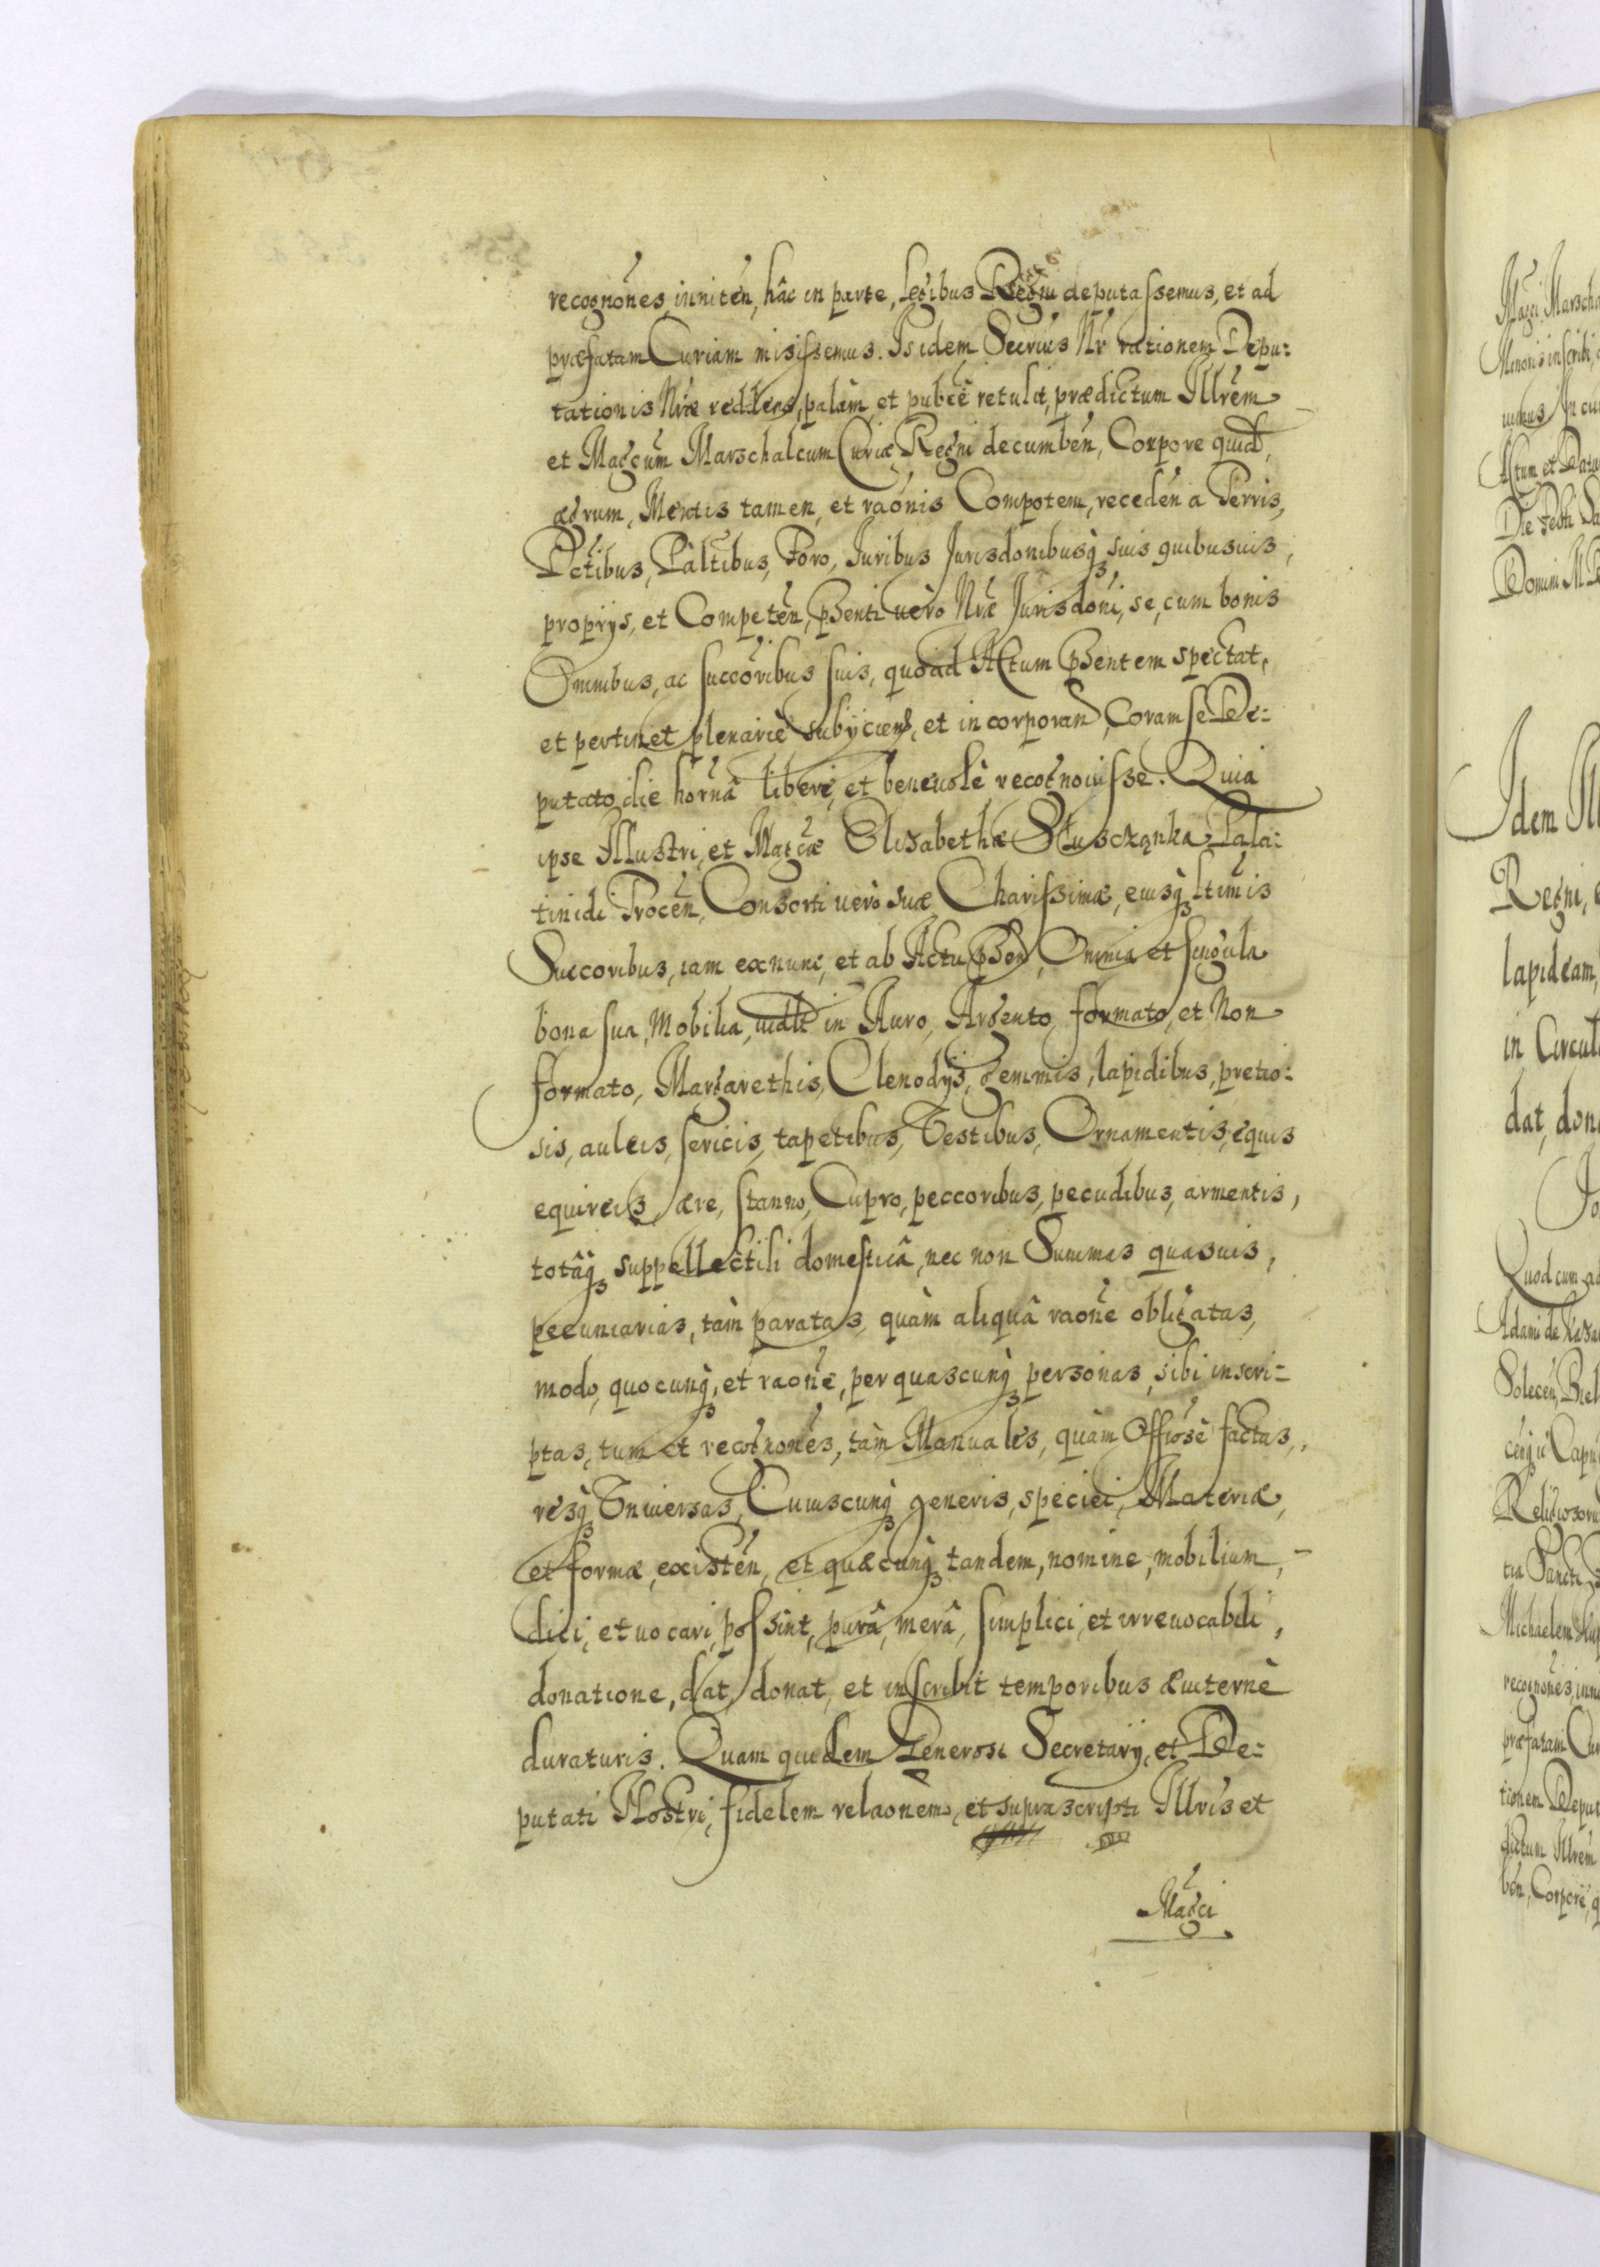 recognones, inniten, hâc in parte, Legibus Regni deputassemus, et ad
præfatam Curiam misissemus. Isidem Secrius Nr̃ rationem Depu:
tationis Nræ reddens, palàm, et publcè retulit, prædictum Illrem
et Magcum Marschalcum Curiæ Regni decumben, Corpore quid,
ægrum, Mentis tamen, et raonis Compotem, receden a Terris,
Dctibus, Paltibus, Foro, Juribus Jurisdonibusq suis quibusuis,
proprijs, et Competen, pñsenti verò Nræ Jurisdoni, se, cum bonis
Omnibus, ac succoribus suis, quoad Actum pñsentem spectat,
et pertinet plenariè subijciens, et incorporan, Coram se De:
putato die hornâ liberè, et beneuolè recognouisse. Quia
ipse Illustri, et Magcæ Elisabethæ Słusczanka Pala:
tinidi Trocen, Consorti verò suæ Charissimæ, eiusq ltimis
Succoribus, iam exnunc, et ab Actu pñsen, Omnia et singula
bona sua, Mobilia, vidlt in Auro, Argento, formato, et Non
formato, Margarethis, Clenodijs, gemmis, lapidibus, pretio:
sis, auleis, sericis, tapetibus, Vestibus, Ornamentis, equis
equireis, ære, stanno, Cupro, peccoribus, pecudibus, armentis,
totâq suppellectili domesticâ, nec non Summas quasuis,
pecuniarias, tàm paratas, quàm aliquâ raone obligatas,
modo, quocunq, et raone, per quascunq personas, sibi inscri-
ptas, tum et recognones, tàm Manuales, quàm Offiosè factas,
resq Vniversas, Cuiuscunq generis, speciei, Materiæ,
et formæ, existen, et quæcunq tandem, nomine, mobilium,
dici, et vocari, possint, purâ, merâ, simplici, et irrevocabili,
donatione, dat, donat, et inscribit temporibus æviternè
duraturis. Quam quidem Generosi Secretarij, et De:
putati Nostri, fidelem relaonem, et supra scripti Illris et
Magci